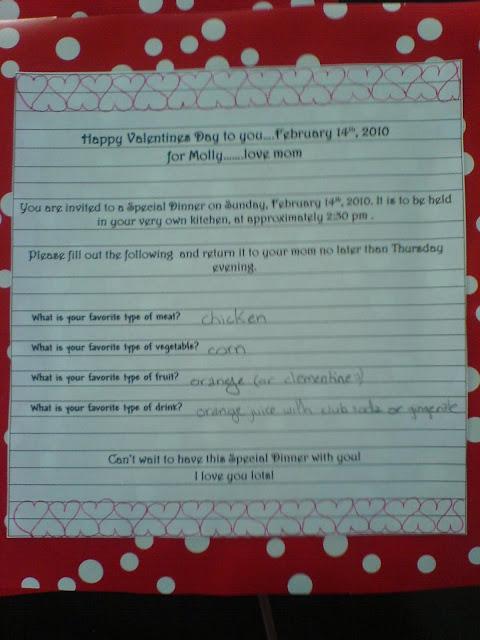 Happy Valentines Day to you....February 14th, 2010
for Molly.......love mom
You are invited to a Special Dinner on Sunday, February 14th, 2010. It is to be held
in your very own kitchen, at approximately 2:30 pm .
Please fill out the following and return it to your mom no later than Thursday
evening.
What is your favorite type of meat? chicken
What is your favorite type of vegetable? corn
What is your favorite type of fruit? orange (or clementine?)
What is your favorite type of drink? orange juice with club soda or gingerale
Can't wait to have this Special Dinner with you!
I love you lots!